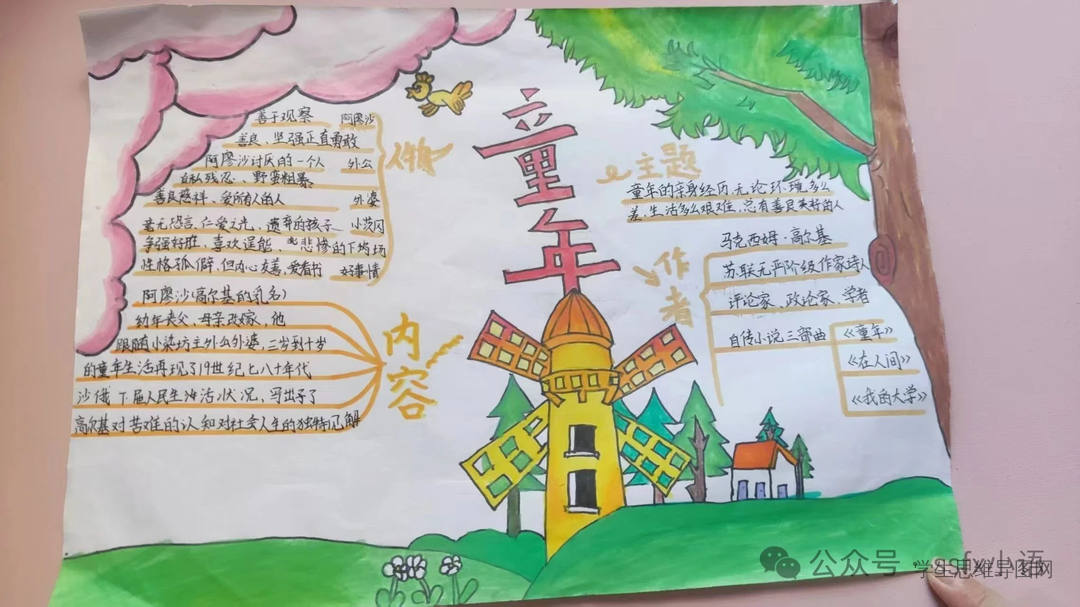 童年
人物
善于观察 阿廖沙
善良、坚强正直勇敢
阿廖沙讨厌的一个人 外公
自私残忍、野蛮粗暴
善良慈祥、爱所有人的人 外婆
老无怨言、仁爱之光，遗弃的孩子 小茨冈
争强好胜，喜欢逞能，悲惨的下场
性格孤僻，但内心友善，爱看书 好事情
内容
阿廖沙(高尔基的乳名)
幼年丧父、母亲改嫁，他
跟随小染坊主外公外婆，三岁到十岁
的童年生活再现了19世纪七八十年代
沙俄下层人民生活状况，写出了
高尔基对苦难的认知对社会人生的独特见解
主题
童年的亲身经历无论环境多么
差，生活多么艰难，总有善良美好的人
作者
马克西姆·高尔基
苏联无产阶级作家诗人
评论家，政论家、学者
自传小说三部曲
《童年》
《在人间》
《我的大学》
公众号
小语
学生思维导图网